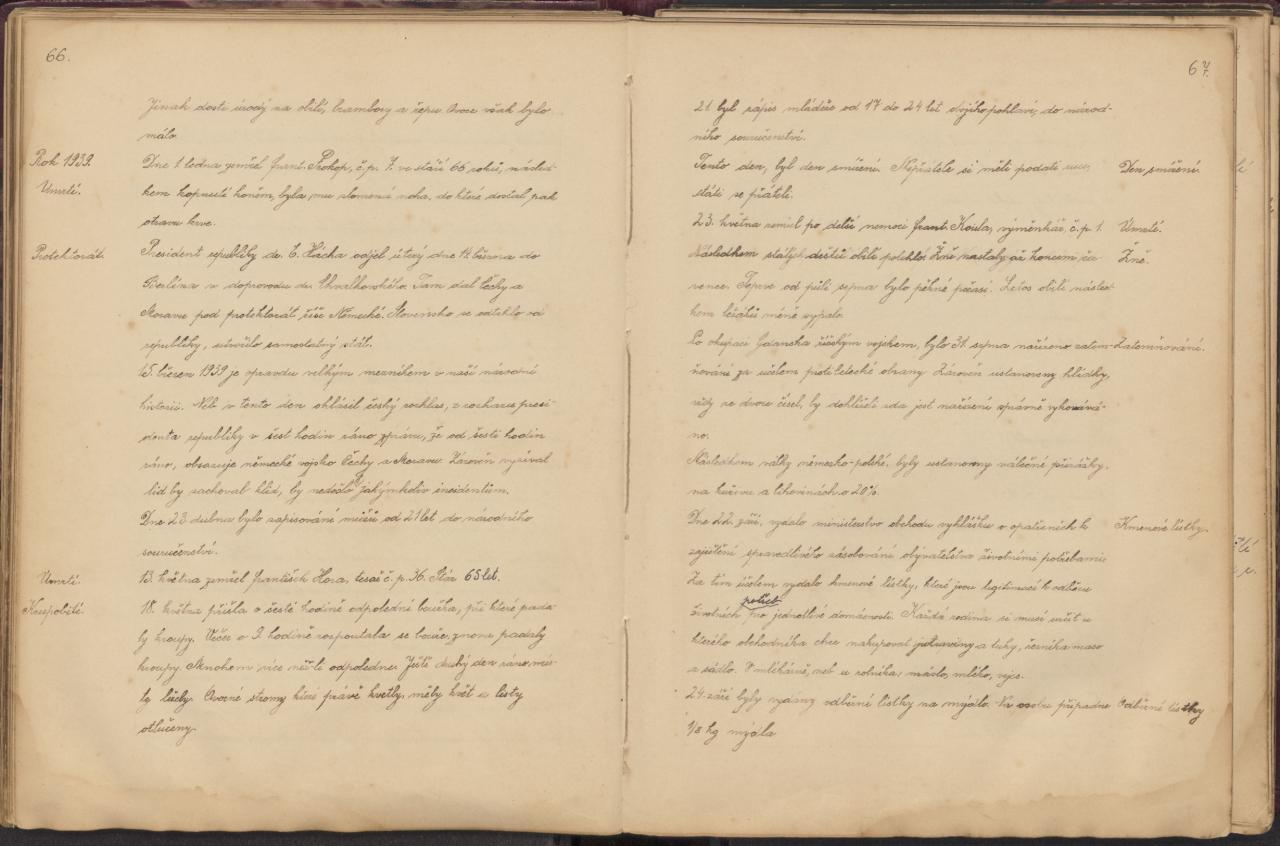 66.
Jinak dosti úrody na obilí, brambory a řepu. Ovoce však bylo
málo.
Rok 1939. Dne 1 ledna zemřel Frant. Prokop, č.p. 7. ve stáří 66 roků, násled-
Úmrtí. kem kopnutí koněm, byla mu zlomena noha, do které dostal pak
otravu krve.
Protektorát. President republiky dr. E. Hácha odjel úterý dne 14 března do
Berlína v doprovodu dr. Chvalkovského. Tam dal Čechy a
Moravu pod protektorát říše Německé. Slovensko se odtrhlo od
republiky, utvořilo samostatný stát.
15. březen 1939 je opravdu velkým mezníkem v naší národní
historii. Neb v tento den ohlásil český rozhlas, z rozkazu presi-
denta republiky v šest hodin ráno zprávu, že od šesti hodin
ráno, obsazuje německé vojsko Čechy a Moravu. Zároveň vyzýval
lid by zachoval klid, by nedošlo k jakýmkoliv incidentům.
Dne 23 dubna bylo zapisování mužů od 21 let do národního
souručenství.
Úmrtí. 13. května zemřel František Hora, tesař č.p. 36. Stár 65 let.
Krupobití. 18. května přišla o šesté hodině odpolední bouřka, při které pada-
ly kroupy. Večer o 9 hodině rozpoutala se bouře, znovu padaly
kroupy. Mnohem více než-li odpoledne. Ještě druhý den ráno
Ovocné stromy, které právě kvetly, měly květ a listy
otlučeny.
67.
21. byl zápis mládeže od 17 do 24 let obojího pohlaví, do národ-
ního souručenství.
Tento den, byl den smíření. Nepřátelé si měli podati ruce, Den smíření.
státi se přáteli.
23. května zemřel po delší nemoci Frant. Koula, výměnkář, č.p. 1. Úmrtí.
Následkem stálých dešťů obilí polehlo. Žně nastaly až koncem čer- Žně.
vence. Teprve od půli srpna bylo pěkné počasí. Letos obilí násled-
kem ležáků méně sypalo.
Po okupaci Gdanska říšským vojskem, bylo 31. srpna nařízeno zatem- Zatemňování.
ňování za účelem protiletecké obrany. Zároveň ustanoveny hlídky,
vždy ze dvou čísel, by dohlíželi zda jest nařízení správně vykonává-
no.
Následkem války německo-polské, byly ustanoveny válečné přirážky,
na kuřivu a lihovinách o 20%.
Dne 22. září, vydalo ministerstvo obchodu vyhlášku o opatřeních k Kmenové lístky.
zajištění spravedlivého zásobování obyvatelstva životními potřebami.
Za tím účelem vydalo kmenové lístky, které jsou legitimací k odběru
potřeb
životních pro jednotlivé domácnosti. Každá rodina se musí určit u
kterého obchodníka chce nakupovat potraviny a tuky, řezníka maso
a sádlo. U mlékárně, neb u rolníka, máslo, mléko, vejce.
24. září byly vydány odběrní lístky na mýdlo. Na osobu připadne Odběrné lístky
1/8 kg mýdla